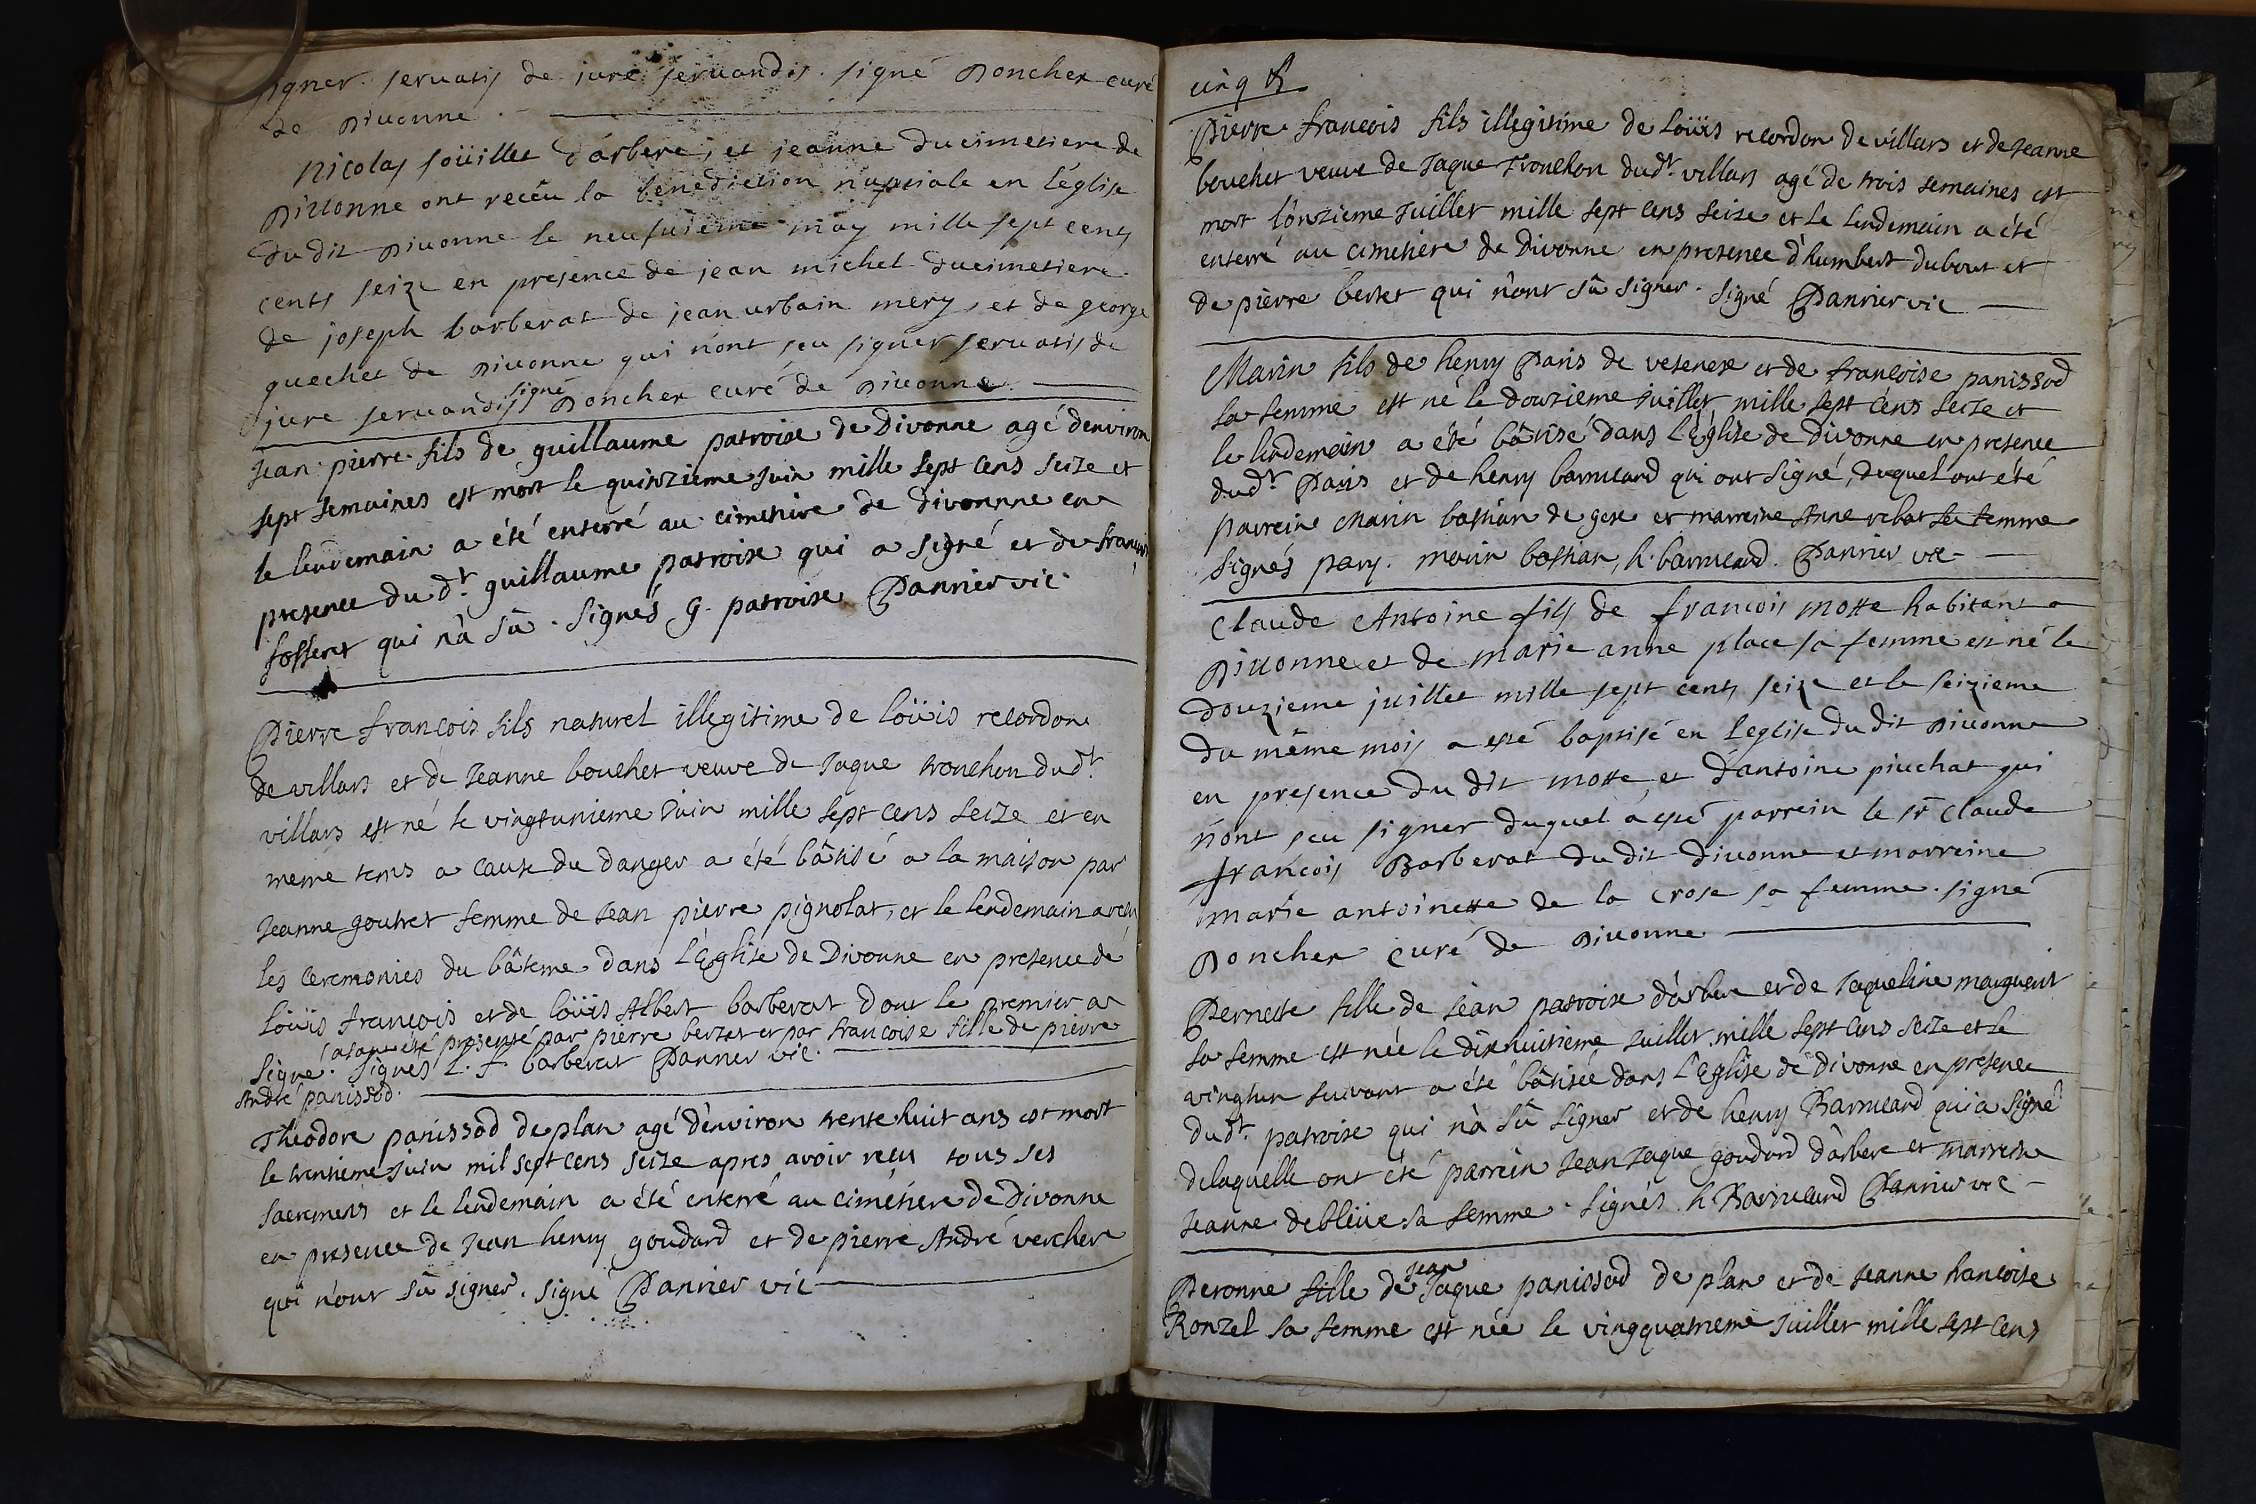 signer servatis de jure servandis. signé Poncher curé
de Divonne.
Nicolas soüillet d'arbere, et jeanne ducimetiere de
Divonne ont recêu la benediction nuptiale en l'église
dudit Divonne le neufuieme may mille sept cents
cents seize en presence de jean michel ducimetiere
de joseph barberat de jean urbain mery, et de george
quechet de Divonne qui n'ont seu signer servatis de
jure servandis signé Poncher curé de Divonne.
Jean pierre fils de guillaume patroise de Divonne agé d'environ
sept semaines est mort le quinzieme juin mille sept cens seize et
le lendemain a été enterré au cimetiere de divonnne en
presence du dt guillaume patroise qui a signé et de françois
fosseret qui n'a sû. Signés g. patroise Pannier vic
Pierre françois fils naturel illegitime de loüis recordon
de villars et de Jeanne bouchet veuve de Jaque tronchon dudt
villars est né le vingtunieme Juin mille sept cens seize et en
meme tems a cause du danger a été bâtisé a la maison par
Jeanne goutret femme de Jean pierre pignolat, et le lendemain a reçu
les ceremonies du bâteme dans l'Eglise de Divonne en presence de
loüis françois et de loüis Albert barberat dont le premier a
aiant été presenté par pierre bertet et par francoise fille de pierre
signé. Signés L. f. barberat Pannier vic.
André panissod.
Theodore panissod de plan agé d'environ trente huit ans est mort
le trentieme Juin mil sept cens seize apres avoir reçu tous ses
sacremens et le lendemain a été enterré au cimétiere de Divonne
en presence de Jean henry goudard et de pierre André verchere
qui n'ont sû signer. signé Pannier vic
cinq R
Pierre francois fils illegitime de loüis recordon de villars et de Jeanne
bouchet veuve de Jaque Tronchon dudt villars agé de trois semaines est
mort l'onzieme Juillet mille sept cens seize et le lendemain a été
enterré au cimetiere de Divonne en presence d'humbert dubout et
de pierre bertet qui n'ont sû signer. Signé Pannier vic
Marin fils de henry Paris de vesenex et de françoise panissod
sa femme est né le douzieme juillet mille sept cens seize et
le lendemain a été bâtisé dans l'Eglise de Divonne en presence
dudt Paris et de henry barrucand qui ont signé, duquel ont été
parrein Marin bastian de gex et marreine Anne rebat sa femme
signés pary. marin bastian, h. barrucand. Pannier vic
Claude Antoine fils de françois motte habitant a
Divonne et de marie anne place sa femme est né le
douzieme juillet mille sept cents seize et le seizieme
du même mois a esté baptisé en l'eglise du dit Divonne
en presence du dit motte, et d'antoine piuchat qui
n'ont seu signer duquel a esté parrein le sr Claude
françois Barberat du dit divonne et marreine
marie antoinette de la crose sa femme. signé
Poncher curé de Divonne
Pernette fille de Jean patroise d'arbere et de Jaqueline marguerit
sa femme est née le dixhuitieme Juillet mille sept cens seize et le
vingtun suivant a été bâtisée dans l'Eglise de Divonne en presence
dudt patroise qui n'a sû signer et de henry Barrucand qui a signé
delaquelle ont été parrein Jean Jaque goudard d'arbere et marreine
Jeanne debliüe sa femme. Signés h Barrucand Pannier vic
Peronne fille de jean Jaque panissod de plan et de Jeanne françoise
Ronzel sa femme est née le vingquatrieme Juillet mille sept cens